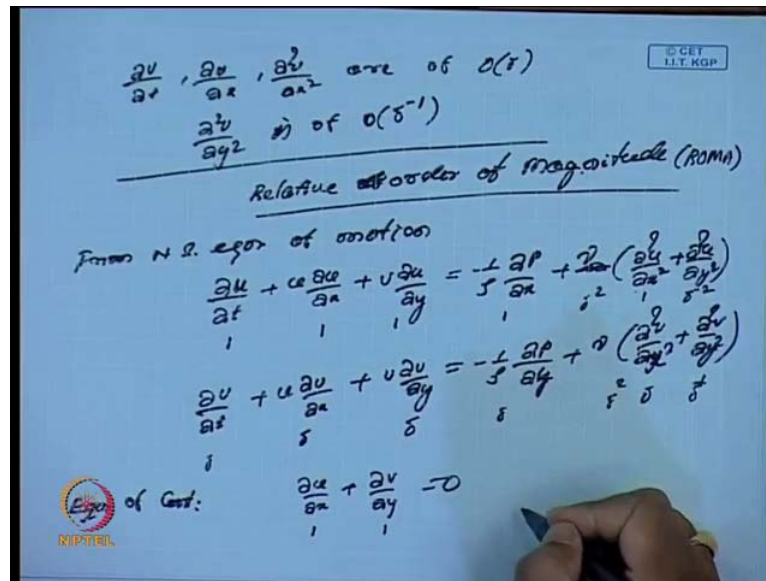 ∂v/∂t , ∂v/∂x , ∂²v/∂x² are of O(δ)
© CET
I.I.T. KGP
∂²v/∂y² is of O(δ⁻¹)
Relative order of magnitude (ROMA)
From N S. eqn of motion
∂u/∂t + u ∂u/∂x + v ∂u/∂y = -1/ρ ∂P/∂x + ν (∂²u/∂x² + ∂²u/∂y²)
1 1 1 1 δ² 1 δ⁻²
∂v/∂t + u ∂v/∂x + v ∂v/∂y = -1/ρ ∂P/∂y + ν (∂²v/∂x² + ∂²v/∂y²)
δ δ δ δ δ² δ δ⁻¹
Eqn of Cont: ∂u/∂x + ∂v/∂y = 0
1 1
NPTEL